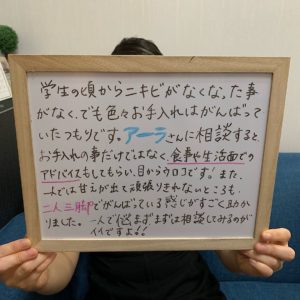 学生の頃からニキビがなくなった事
がなく、でも色々お手入れはがんばって
いたつもりです。アーラさんに相談すると
お手入れの事だけではなく、食事や生活面での
アドバイスもしてもらい、目からウロコです！また、
一人では甘えが出て頑張りきれないところも、
二人三脚でがんばっている感じがすごく助か
りました。一人で悩まずまずは相談してみるのが
イイですよ!!